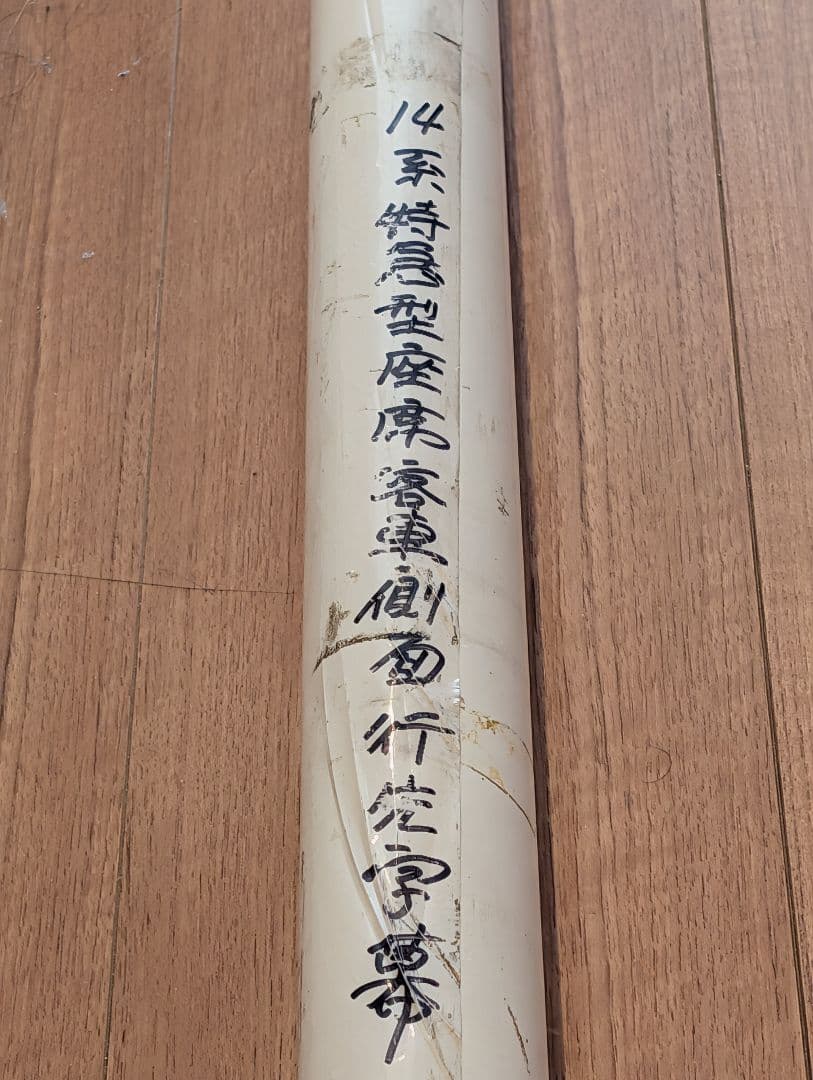 14系特急型座席客車側面行先字幕